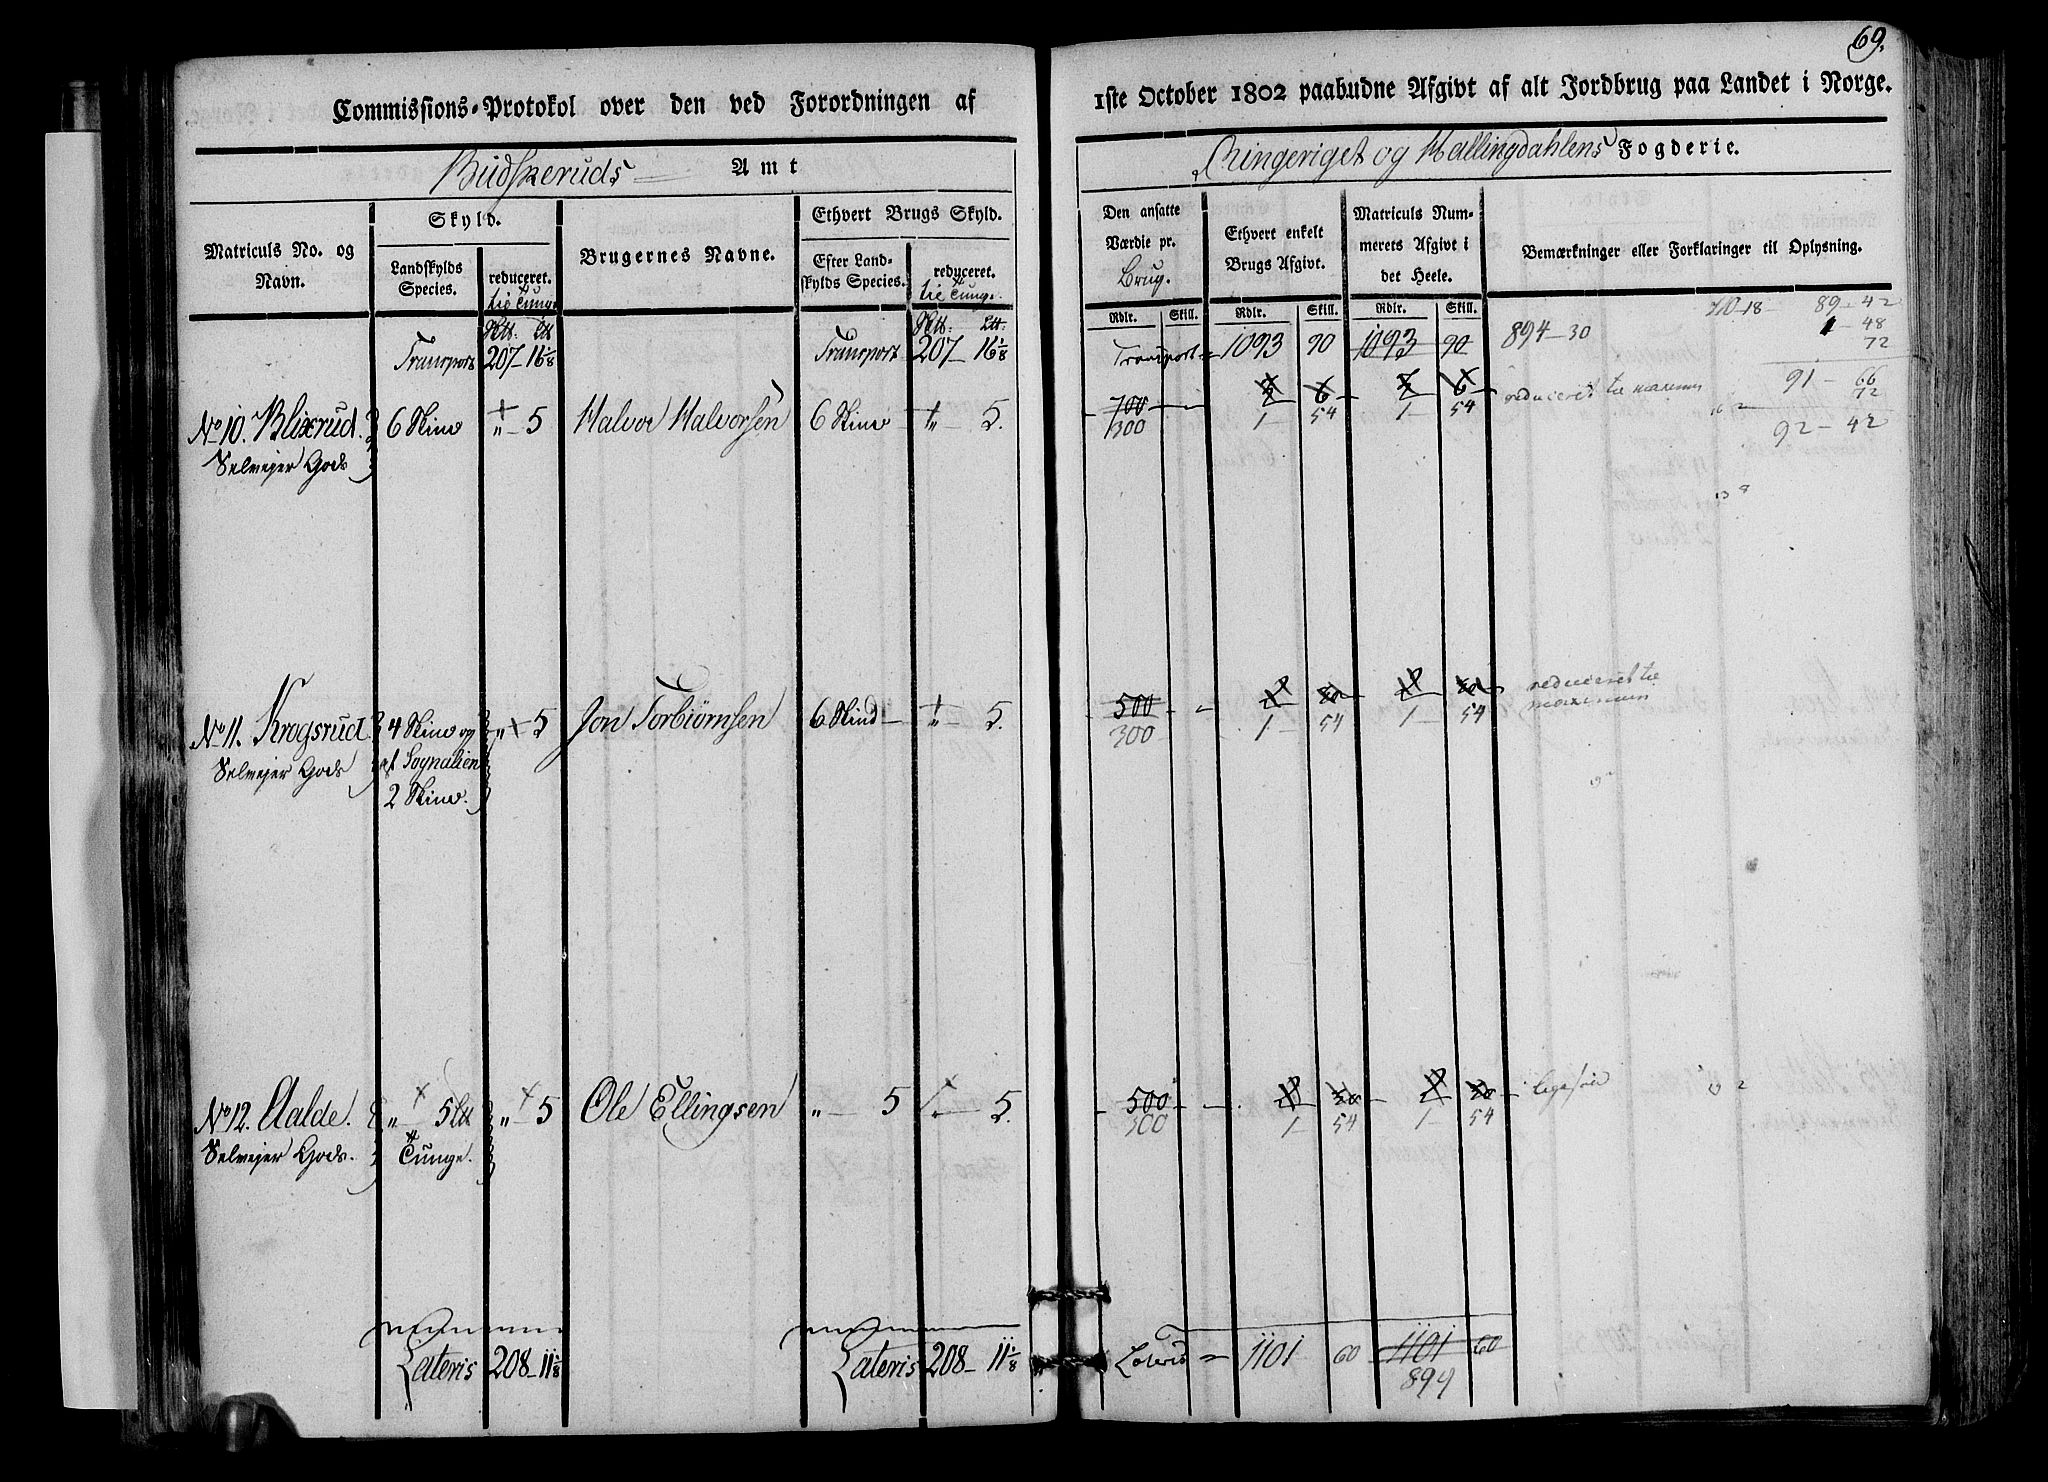 69.
Commissions-Protokol over den ved Forordningen af
1ste October 1802 paabudne Afgivt af alt Jordbrug paa Landet i Norge.
Budskeruds Amt
Ringeriget og Hallingdahlens Fogderie.
Matriculs No. og Navn.
Skyld.
Landskylds Species.
reduceret.
til Tunge
Brugernes Navne.
Ethvert Brugs Skyld.
Efter Landskylds Species.
reduceret.
til Tunge
Den ansatte Værdie pr. Brug.
Rdlr. Skill.
Ethvert enkelt Brugs Afgivt.
Rdlr. Skill.
Matriculs Nummerets Afgivt i det Heele.
Rdlr. Skill.
Bemærkninger eller Forklaringer til Oplysning.
Transport 207 - 16 1/8 Transport 207 - 16 1/8
Transport 1093 90 1093 90 894-30
89-42
1-48
72
91-66
72
92-42
No 10. Blixrud. 6 Skind " - 5 Halvor Halvorsen 6 Skind " - 5.
Selvejer Gods
700 2 6 2 6 reduceret til maximum
300 1 - 54 1 - 54
No 11. Krogsrud 4 Skind og " - 5 Jon Torbiørnsen 6 Skind " - 5.
Selvejer Gods af Sognalien
2 Skind.
500 reduceret til maximum
300 1 - 54 1 - 54
No 12. Aalde. " - 5 Ltt " - 5 Ole Ellingsen " - 5 - 5.
Selvejer Gods. Tunge.
500 ligesaa
300 1 - 54 1 - 54
Lateris 208 - 11 1/8 Lateris 208 - 11 1/8
Lateris 1101 60 1101 60
894